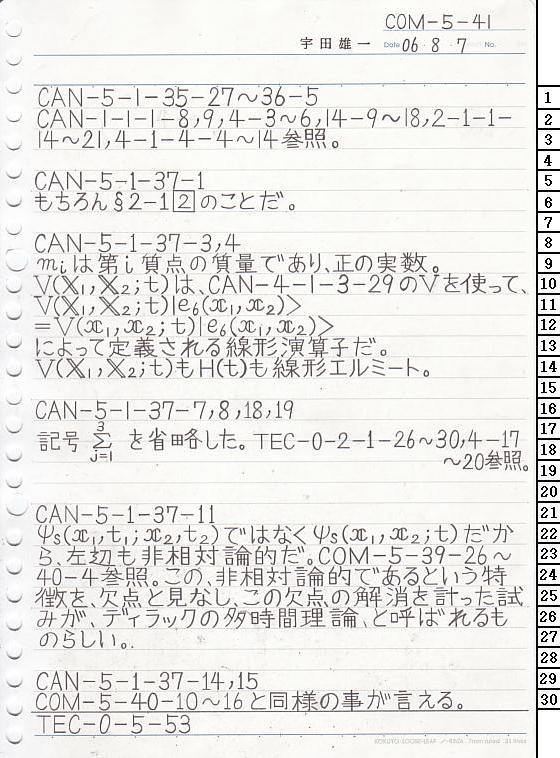 COM-5-41
宇田雄一 Date 06・8・7 No.
CAN-5-1-35-27〜36-5
CAN-1-1-1-8,9,4-3〜6,14-9〜18,2-1-1-
14〜21,4-1-4-4〜14参照。
CAN-5-1-37-1
もちろん§2-1②のことだ。
CAN-5-1-37-3,4
miは第i質点の質量であり、正の実数。
V(X1,X2;t)は、CAN-4-1-3-29のVを使って、
V(X1,X2;t)|e6(x1,x2)>
=V(x1,x2;t)|e6(x1,x2)>
によって定義される線形演算子だ。
V(X1,X2;t)もH(t)も線形エルミート。
CAN-5-1-37-7,8,18,19
記号 3Σj=1 を省略した。TEC-0-2-1-26〜30,4-17
〜20参照。
CAN-5-1-37-11
ψs(x1,t1;x2,t2)ではなくψs(x1,x2;t)だか
ら、左辺も非相対論的だ。COM-5-39-26〜
40-4参照。この、非相対論的であるという特
徴を、欠点と見なし、この欠点の解消を計った試
みが、ディラックの多時間理論、と呼ばれるも
のらしい。
CAN-5-1-37-14,15
COM-5-40-10〜16と同様の事が言える。
TEC-0-5-53
1
2
3
4
5
6
7
8
9
10
11
12
13
14
15
16
17
18
19
20
21
22
23
24
25
26
27
28
29
30
KOKUYO LOOSE-LEAF